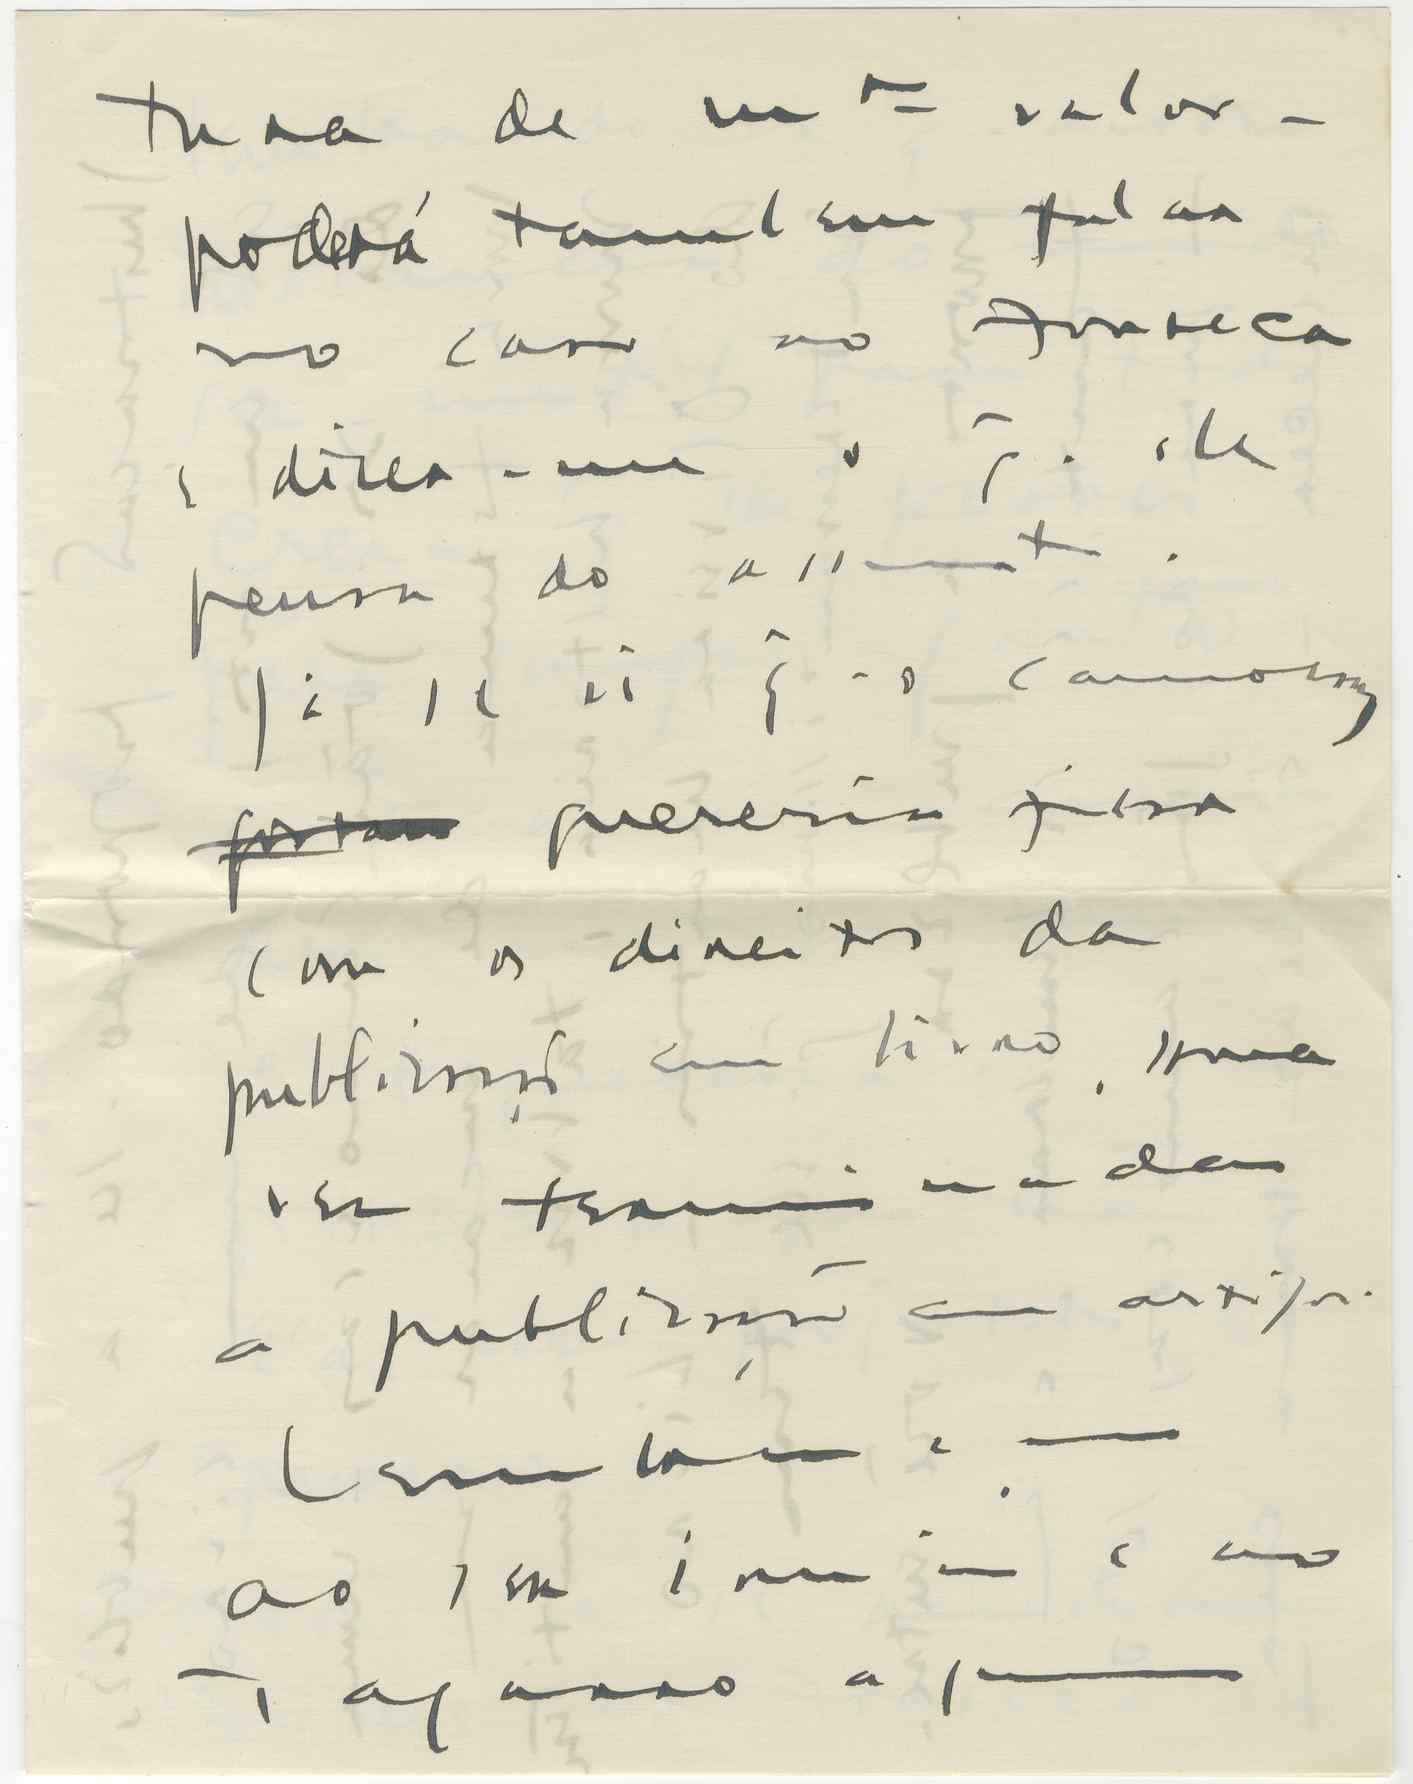 tura de mto valor –
poderá tambem falar
no caso ao Fonseca
e dizer-me o q. ele
pensa do assunto.
Já se vê q. o
quereria ficar
com os direitos da
publicação em livro, uma
vez terminada
a publicação em artigos.
Lembranças
ao seu irmão e ao